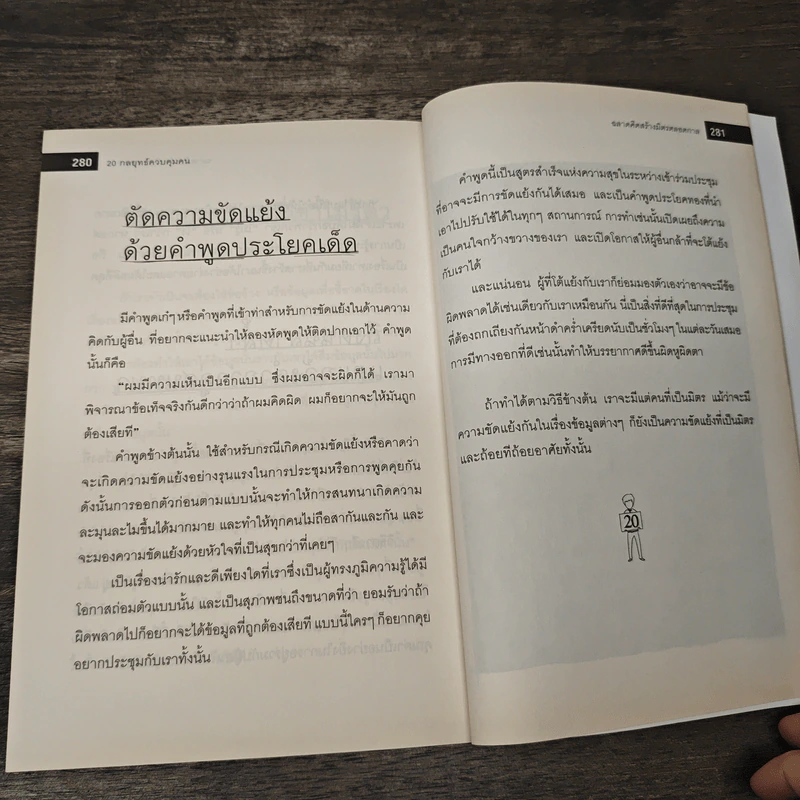 280 20 กลยุทธ์ควบคุมคน
ตัดความขัดแย้ง
ด้วยคำพูดประโยคเด็ด
มีคำพูดเก๋ๆ หรือคำพูดที่เข้าท่าสำหรับการขัดแย้งในด้านความ
คิดกับผู้อื่น ที่อยากจะแนะนำให้ลองหัดพูดให้ติดปากเอาไว้ คำพูด
นั้นก็คือ
“ผมมีความเห็นเป็นอีกแบบ ซึ่งผมอาจจะผิดก็ได้ เรามา
พิจารณาข้อเท็จจริงกันดีกว่าว่าถ้าผมคิดผิด ผมก็อยากจะให้มันถูก
ต้องเสียที”
คำพูดข้างต้นนั้น ใช้สำหรับกรณีเกิดความขัดแย้งหรือคาดว่า
จะเกิดความขัดแย้งอย่างรุนแรงในการประชุมหรือการพูดคุยกัน
ดังนั้นการออกตัวก่อนตามแบบนั้นจะทำให้การสนทนาเกิดความ
ละมุนละไมขึ้นได้มากมาย และทำให้ทุกคนไม่ถือสากันและกัน และ
จะมองความขัดแย้งด้วยหัวใจที่เป็นสุขกว่าที่เคยๆ
เป็นเรื่องน่ารักและดีเพียงใดที่เราซึ่งเป็นผู้ทรงภูมิความรู้ได้มี
โอกาสถ่อมตัวแบบนั้น และเป็นสุภาพชนถึงขนาดที่ว่า ยอมรับว่าถ้า
ผิดพลาดไปก็อยากจะได้ข้อมูลที่ถูกต้องเสียที แบบนี้ใครๆ ก็อยากคุย
อยากประชุมกับเราทั้งนั้น
ฉลาดคิดสร้างมิตรตลอดกาล 281
คำพูดนี้เป็นสูตรสำเร็จแห่งความสุขในระหว่างเข้าร่วมประชุม
ที่อาจจะมีการขัดแย้งกันได้เสมอ และเป็นคำพูดประโยคทองที่นำ
เอาไปปรับใช้ได้ในทุกๆ สถานการณ์ การทำเช่นนั้นเปิดเผยถึงความ
เป็นคนใจกว้างขวางของเรา และเปิดโอกาสให้ผู้อื่นกล้าที่จะโต้แย้ง
กับเราได้
และแน่นอน ผู้ที่โต้แย้งกับเราก็ย่อมมองตัวเองว่าอาจจะมีข้อ
ผิดพลาดได้เช่นเดียวกับเราเหมือนกัน นี่เป็นสิ่งที่ดีที่สุดในการประชุม
ที่ต้องถกเถียงกันหน้าดำคร่ำเครียดนับเป็นชั่วโมงๆ ในแต่ละวันเสมอ
การมีทางออกที่ดีเช่นนั้นทำให้บรรยากาศดีขึ้นผิดหูผิดตา
ถ้าทำได้ตามวิธีข้างต้น เราจะมีแต่คนที่เป็นมิตร แม้ว่าจะมี
ความขัดแย้งกันในเรื่องข้อมูลต่างๆ ก็ยังเป็นความขัดแย้งที่เป็นมิตร
และถ้อยทีถ้อยอาศัยทั้งนั้น
20